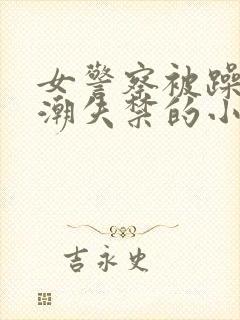 女警察被躁
潮失禁的小
吉永史